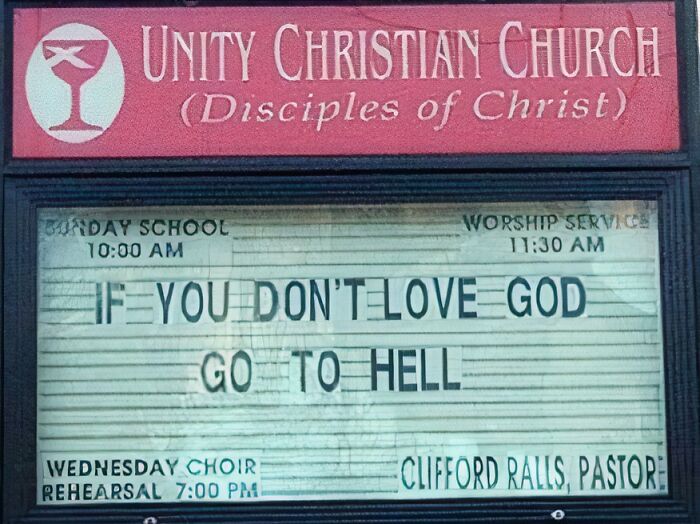 UNITY CHRISTIAN CHURCH
(Disciples of Christ)
SUNDAY SCHOOL
10:00 AM
WORSHIP SERVICE
11:30 AM
IF YOU DON'T LOVE GOD
GO TO HELL
WEDNESDAY CHOIR
REHEARSAL 7:00 PM
CLIFFORD RALLS, PASTOR